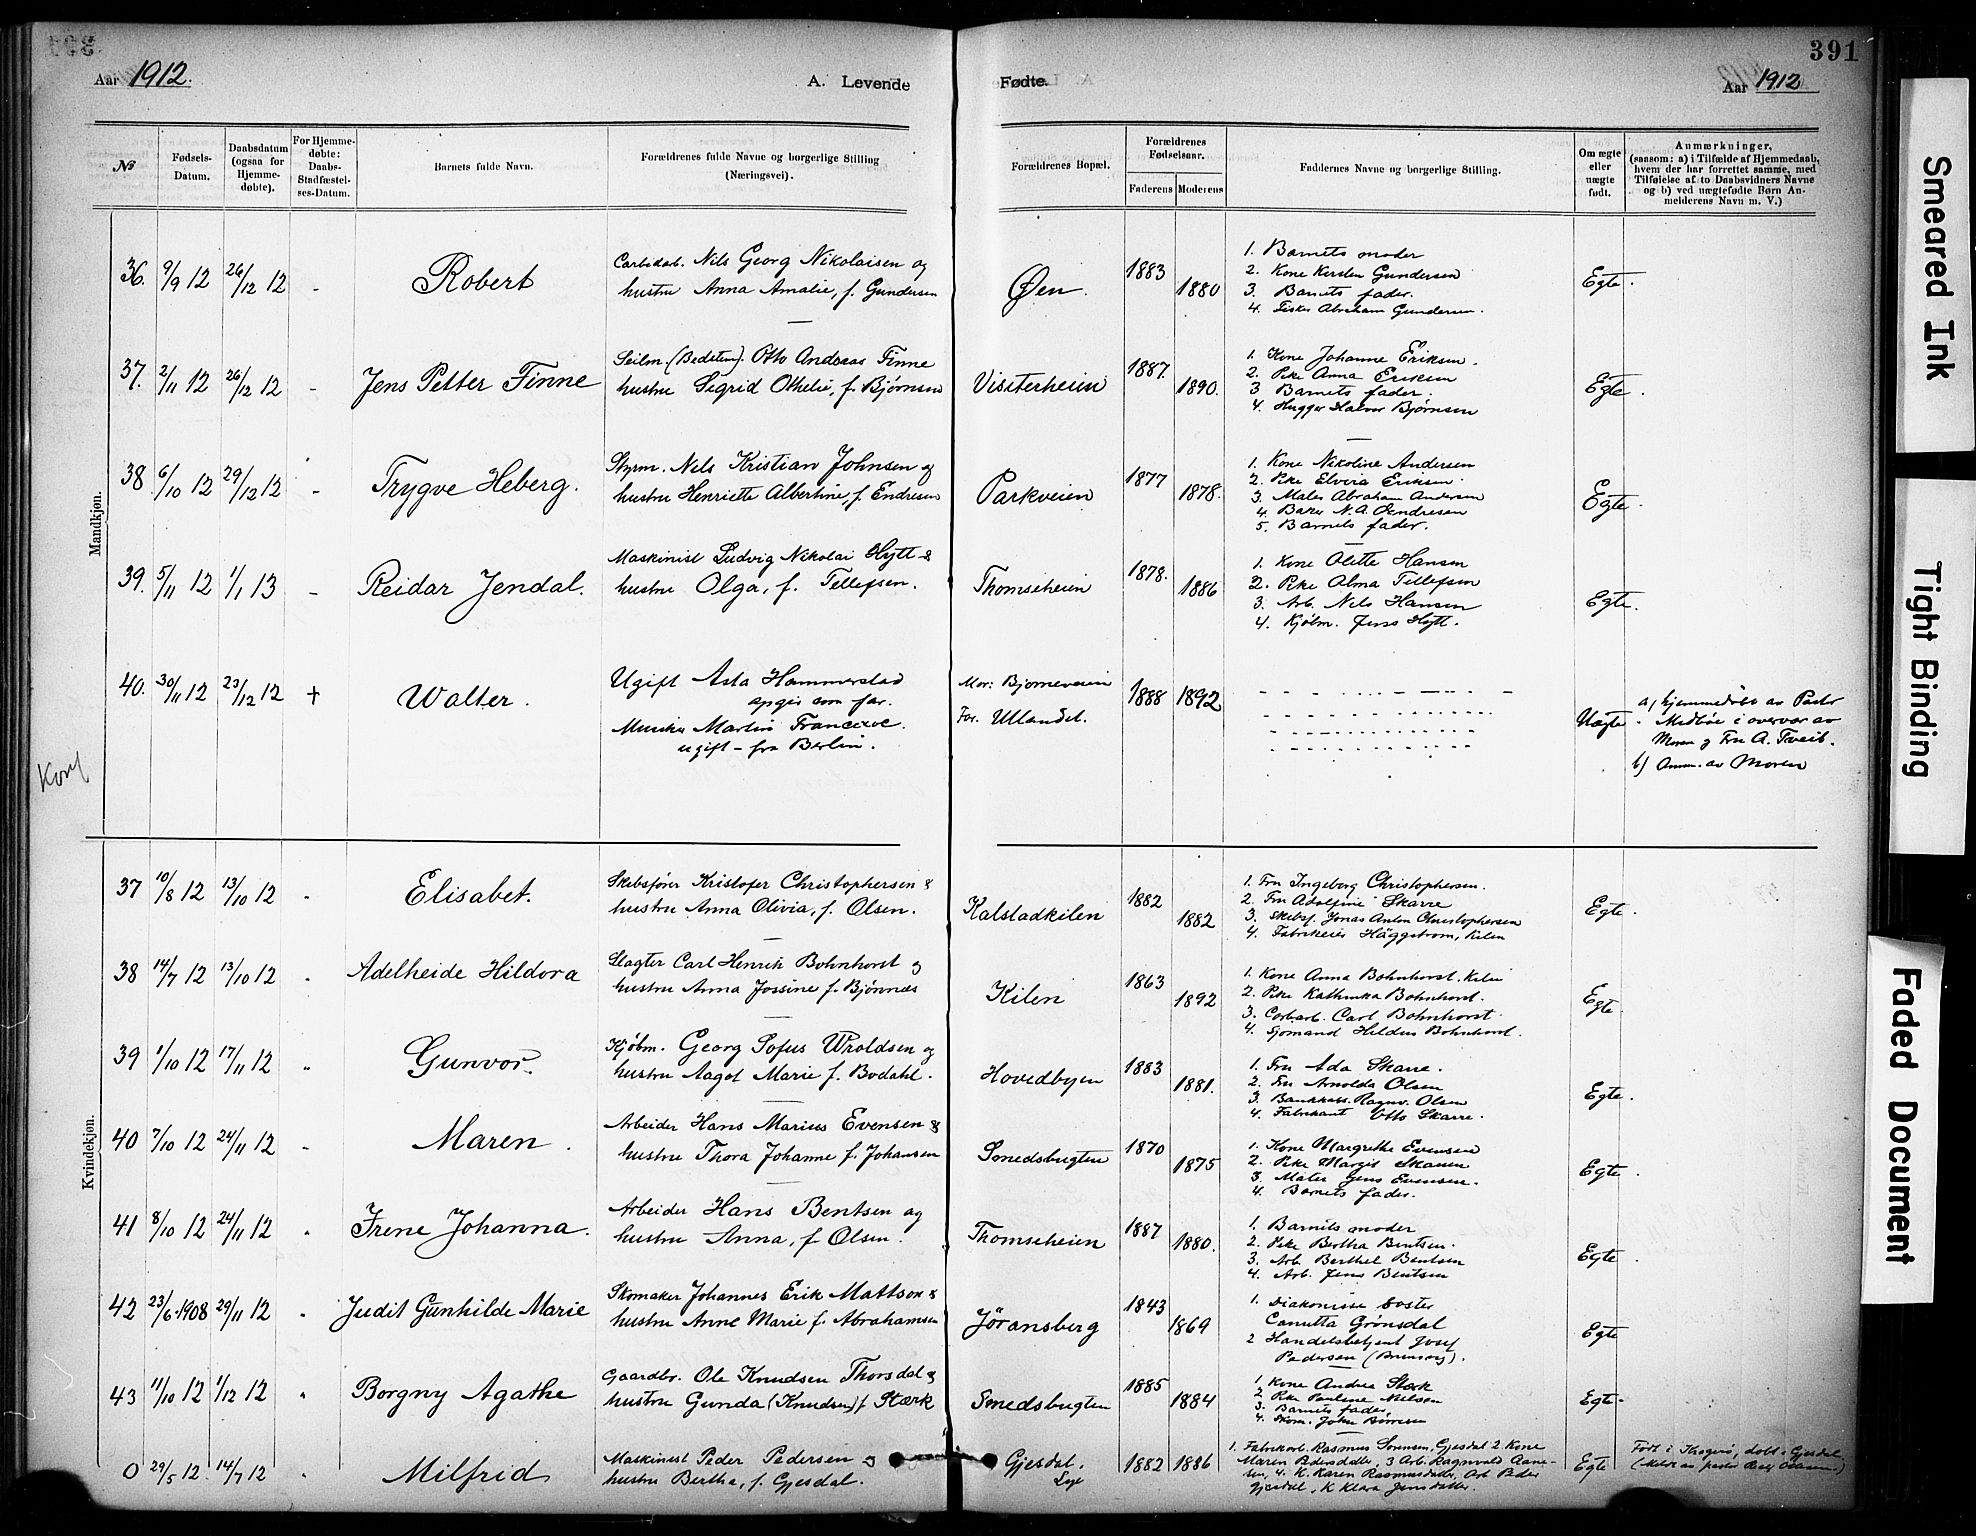 391
Aar 1912.
A. Levende Fødte.
Aar 1912
№
Fødsels-Datum.
Daabsdatum (ogsaa for Hjemme-døbte).
For Hjemme-døbte: Daabs-Stadfæstel-ses-Datum.
Barnets fulde Navn.
Forældrenes fulde Navne og borgerlige Stilling (Næringsvei).
Forældrenes Bopæl.
Forældrenes Fødselsaar.
Faderens Moderens
Faddernes Navne og borgerlige Stilling.
Om ægte eller uægte født.
Anmærkninger,
(saasom: a) i Tilfælde af Hjemmedaab, hvem der har forrettet samme, med Tilføielse af to Daabsvidners Navne og b) ved uægtefødte Børn An-melderens Navn m. V.)
Mandkjøn.
36. 9/9 12 26/12 12 - Robert
Carbidarb. Nils Georg Nikolaisen og
hustru Anna Amalie, f. Gundersen
Øen. 1883 1880
1. Barnets moder
2. Kone Kirsten Gundersen
3. Barnets fader.
4. Fisker Abraham Gundersen.
Egte.
37. 2/11 12 26/12 12 - Jens Petter Finne
Seilm. (Bedstem). Otto Andreas Finne
hustru Sigrid Othelie, f. Bjørnsen
Visiterheien 1887. 1890.
1. Kone Johanne Eriksen.
2. Pike Anna Eriksen
3 Barnets fader.
4. Hugger Halvor Bjørnsen
Egte.
38. 6/10 12 29/12 12 - Trygve Heberg.
Styrm. Nils Kristian Johnsen og
hustru Henriette Albertine, f. Endresen
Parkveien 1877 1878.
1. Kone Nikoline Andersen
2. Pike Elvira Eriksen.
3. Maler Abraham Andersen
4. Baker N. A. Endresen
5. Barnets fader.
Egte.
39. 5/11 12 1/1 13 - Reidar Jendal.
Maskinist Ludvig Nikolai Hytt &
hustru Olga, f. Tellefsen.
Thomseheien 1878. 1886
1. Kone Olette Hansen
2. Pike Alma Tellefsen
3. Arb. Nils Hansen
4. Kjøbm. Jens Hytt.
Egte.
40. 30/11 12 23/12 12 + Walter.
Ugift Asta Hammerstad
opgir som far.
Musiker Martin
ugift - fra Berlin.
Mor: Bjorneveien
Far. Utlandet. 1888 1892
Uægte
a) hjemmedøbt av Pastor
Midbøe i overvær av
Moren og Fru A. Tveit.
b) Anm. av Moren
Konf
Kvindekjøn.
37 10/8 12 13/10 12 - Elisabet.
Skibsfører Kristofer Christophersen &
hustru Anna Olivia, f. Olsen.
Kalstadkilen 1882 1882
1. Fru Ingeborg Christophersen.
2. Fru Adolfine Skarre
3. Skibsf. Jonas Anton Christophersen
4. Fabrikeier Häggstrom, Kilen
Egte.
38 14/7 12 13/10 12 - Adelheide Hildora
Slagter Carl Henrik Bohnhorst og
hustru Anna Jossine f. Bjønnes
Kilen 1863 1892
1. Kone Anna Bohnhorst, Kilen
2. Pike Kathinka Bohnhorst.
3. Carbarb. Carl Bohnhorst.
4. Sjømand Hildus Bohnhorst.
Egte.
39 1/10 12 17/11 12 " Gunvor.
Kjøbm. Georg Sofus Wroldsen og
hustru Aagot Marie f. Bodahl.
Hovedbyen 1883 1881.
1. Fru Ada Skarre.
2. Fru Arnolda Olsen
3. Bankkass. Ragnv. Olsen
4. Fabrikant Otto Skarre.
Egte.
40 7/10 12 24/11 12 - Maren.
Arbeider Hans Marius Evensen &
hustru Thora Johanne f. Johansen
Smedsbugten 1870 1875
1. Kone Margrethe Evensen
2. Pike Margit
3. Maler Jens Evensen.
4. Barnets fader.
Egte
41 8/10 12 24/11 12 " Irene Johanna.
Arbeider Hans Bentsen og
hustru Anna, f. Olsen.
Thomseheien 1887 1880.
1. Barnets moder
2. Pike Bertha Bentsen.
3. Arb. Berthel Bentsen
4. Arb. Jens Bentsen
Egte.
42 23/6 1908 29/11 12 " Judit Gunhilde Marie
Skomaker Johannes Erik Mattson &
hustru Anne Marie f. Abrahamsen
Jøransberg 1843 1869
1. Diakonisse søster
Canutta Grønsdal
2 Handelsbetjent Josef
Pedersen
Egte
43 11/10 12 1/12 12 " Borgny Agathe
Gaardbr. Ole Knudsen Thorsdal &
hustru Gunda (Knudsen) f. Stærk
Smedsbugten 1885 1884
1. Kone Andrea Stærk
2. Pike Pauline Nilsen
3. Barnets fader
4. Skom. John
Egte.
0 29/5 12. 14/7 12 Milfrid
Maskinist Peder Pedersen og
hustru Bertha, f. Gjesdal.
Gjesdal.
Lye 1882 1886
1. Fabrikarb. Rasmus Sørensen, Gjesdal 2 Kone
Maren Pedersdatter, 3 Arb. Ragnvald Aane-
sen, 4. K. Karen Rasmusdatter, Arb Peder
Gjesdal, K Klara Jensdatter.
Egte
Født i Kragerø, døbt i Gjesdal
Smeared Ink
Tight Binding
Faded Document